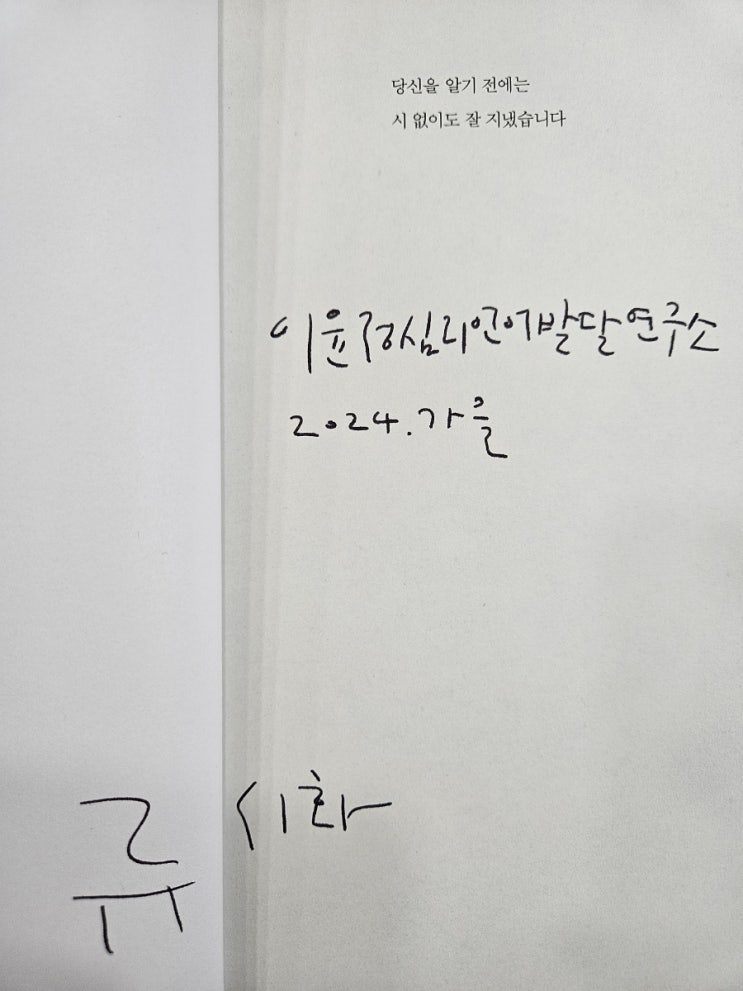 당신을 알기 전에는
시 없이도 잘 지냈습니다
이윤정심리언어발달연구소
2024. 가을
류시화